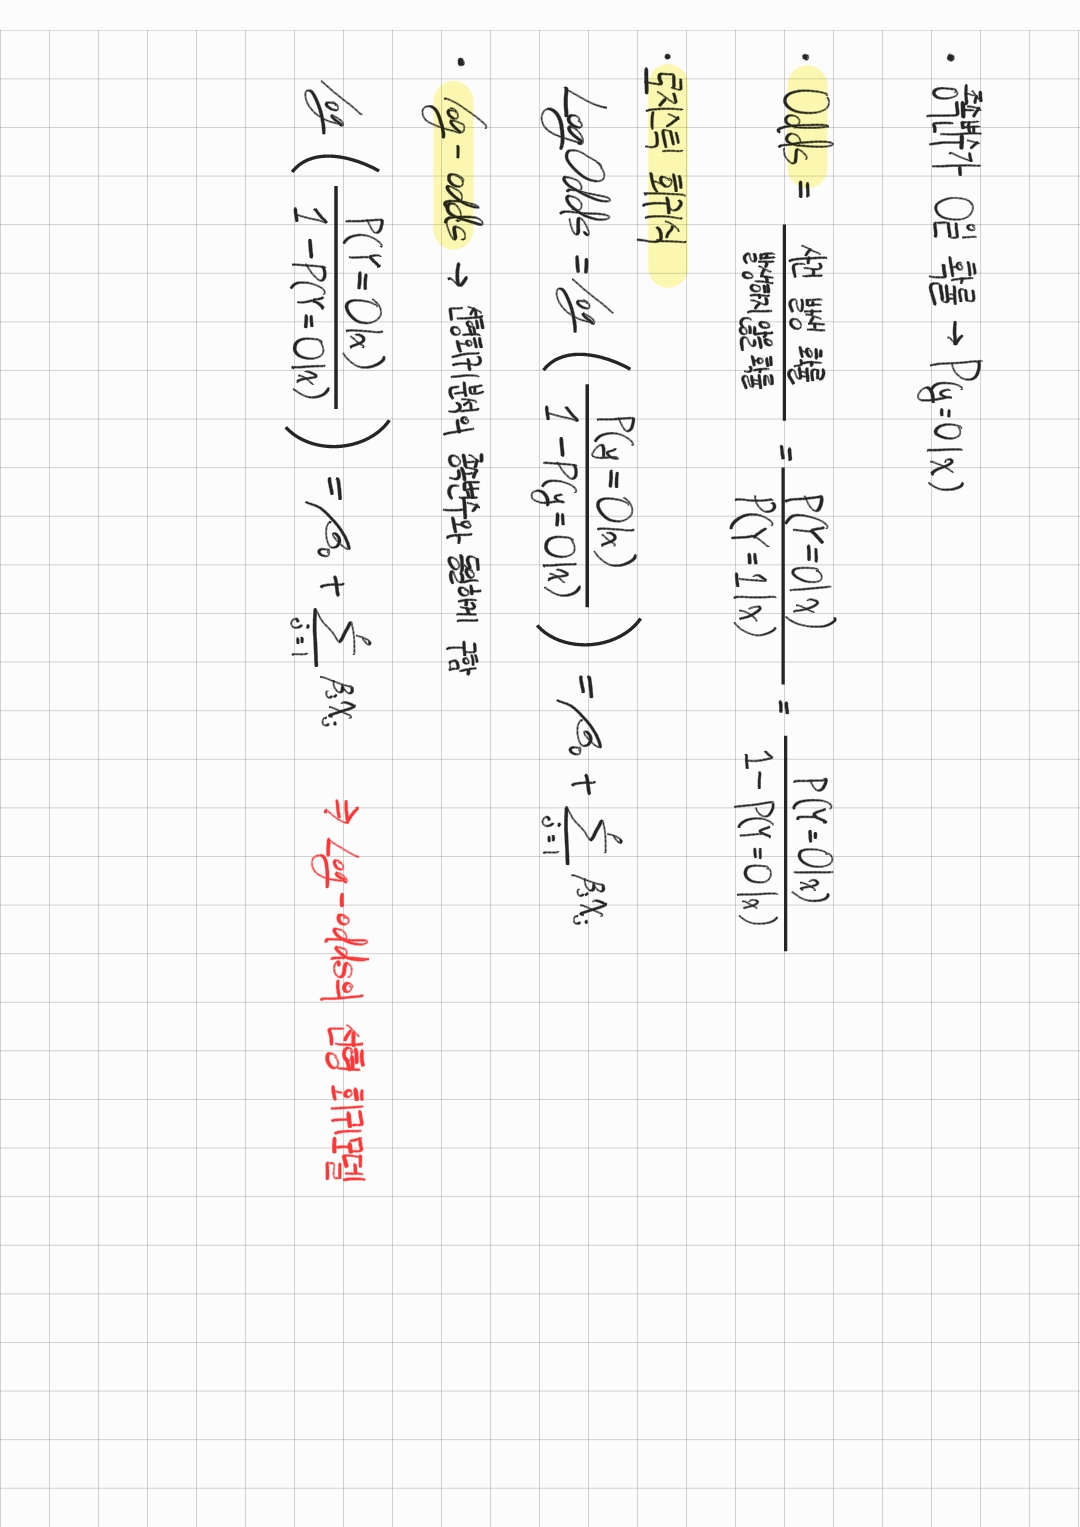 • 종속변수가 0일 확률 → P(y=0|x)
• Odds = 사건 발생 확률 / 발생하지 않을 확률 = P(Y=0|x) / P(Y=1|x) = P(Y=0|x) / 1-P(Y=0|x)
• 로지스틱 회귀식
Log Odds = log ( P(y=0|x) / 1-P(y=0|x) ) = β₀ + Σ_{j=1}^{p} βⱼxⱼ
• log-odds → 선형회귀분석의 종속변수와 동일하게 구함
log ( P(Y=0|x) / 1-P(Y=0|x) ) = β₀ + Σ_{j=1}^{p} βⱼxⱼ ⇒ Log-odds의 선형 회귀모델